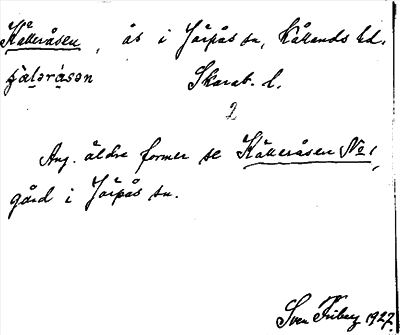 Källeråsen, ås i Järpås sn, Kållands hd.
Skarab. l.
2
Ang. äldre former se Källeråsen No 1,
gård i Järpås sn.
Sven Friberg 1927.